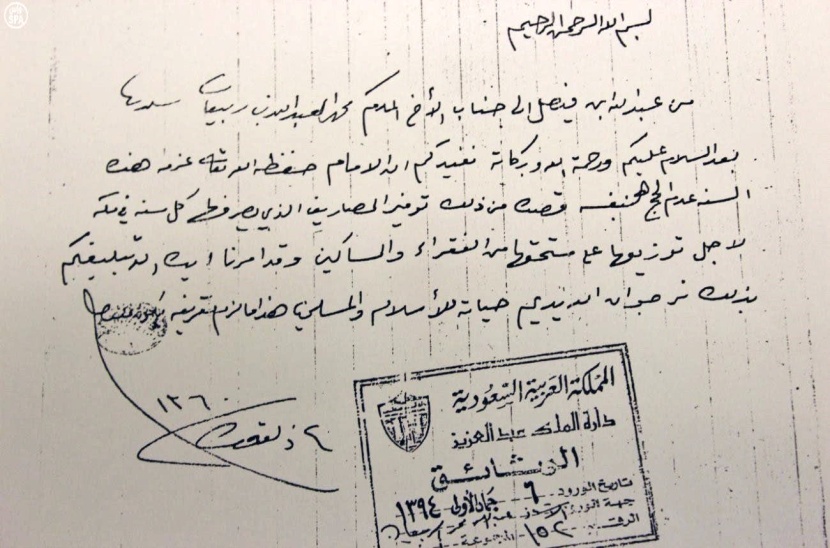 بسم الله الرحمن الرحيم
من عبدالله ابن فيصل الى جناب الأخ المكرم محمد العبدالله بن ربيعان سلمه
بعد السلام عليكم ورحمة الله وبركاته نفيدكم ان الامام حفظه الله تعالى عزم هذه
السنه عدم الحج بنفسه قصده من ذلك توفير المصاريف الذي يصرفها كل سنه في مكه
لاجل توزيعها على مستحقها من الفقراء والمساكين وقد امرنا ايده الله تبليغكم
بذلك نرجو ان الله يديم حياته للأسلام والمسلمين هذا مالزم تعريفه
١٣٦٠
ذالقعدة
المملكة العربية السعودية
دارة الملك عبد العزيز
الوثائق
تاريخ الورود ٦ جمادى الأولى ١٣٩٤
جهة الورود
الرقم ١٥٢ المجموعة
SPA